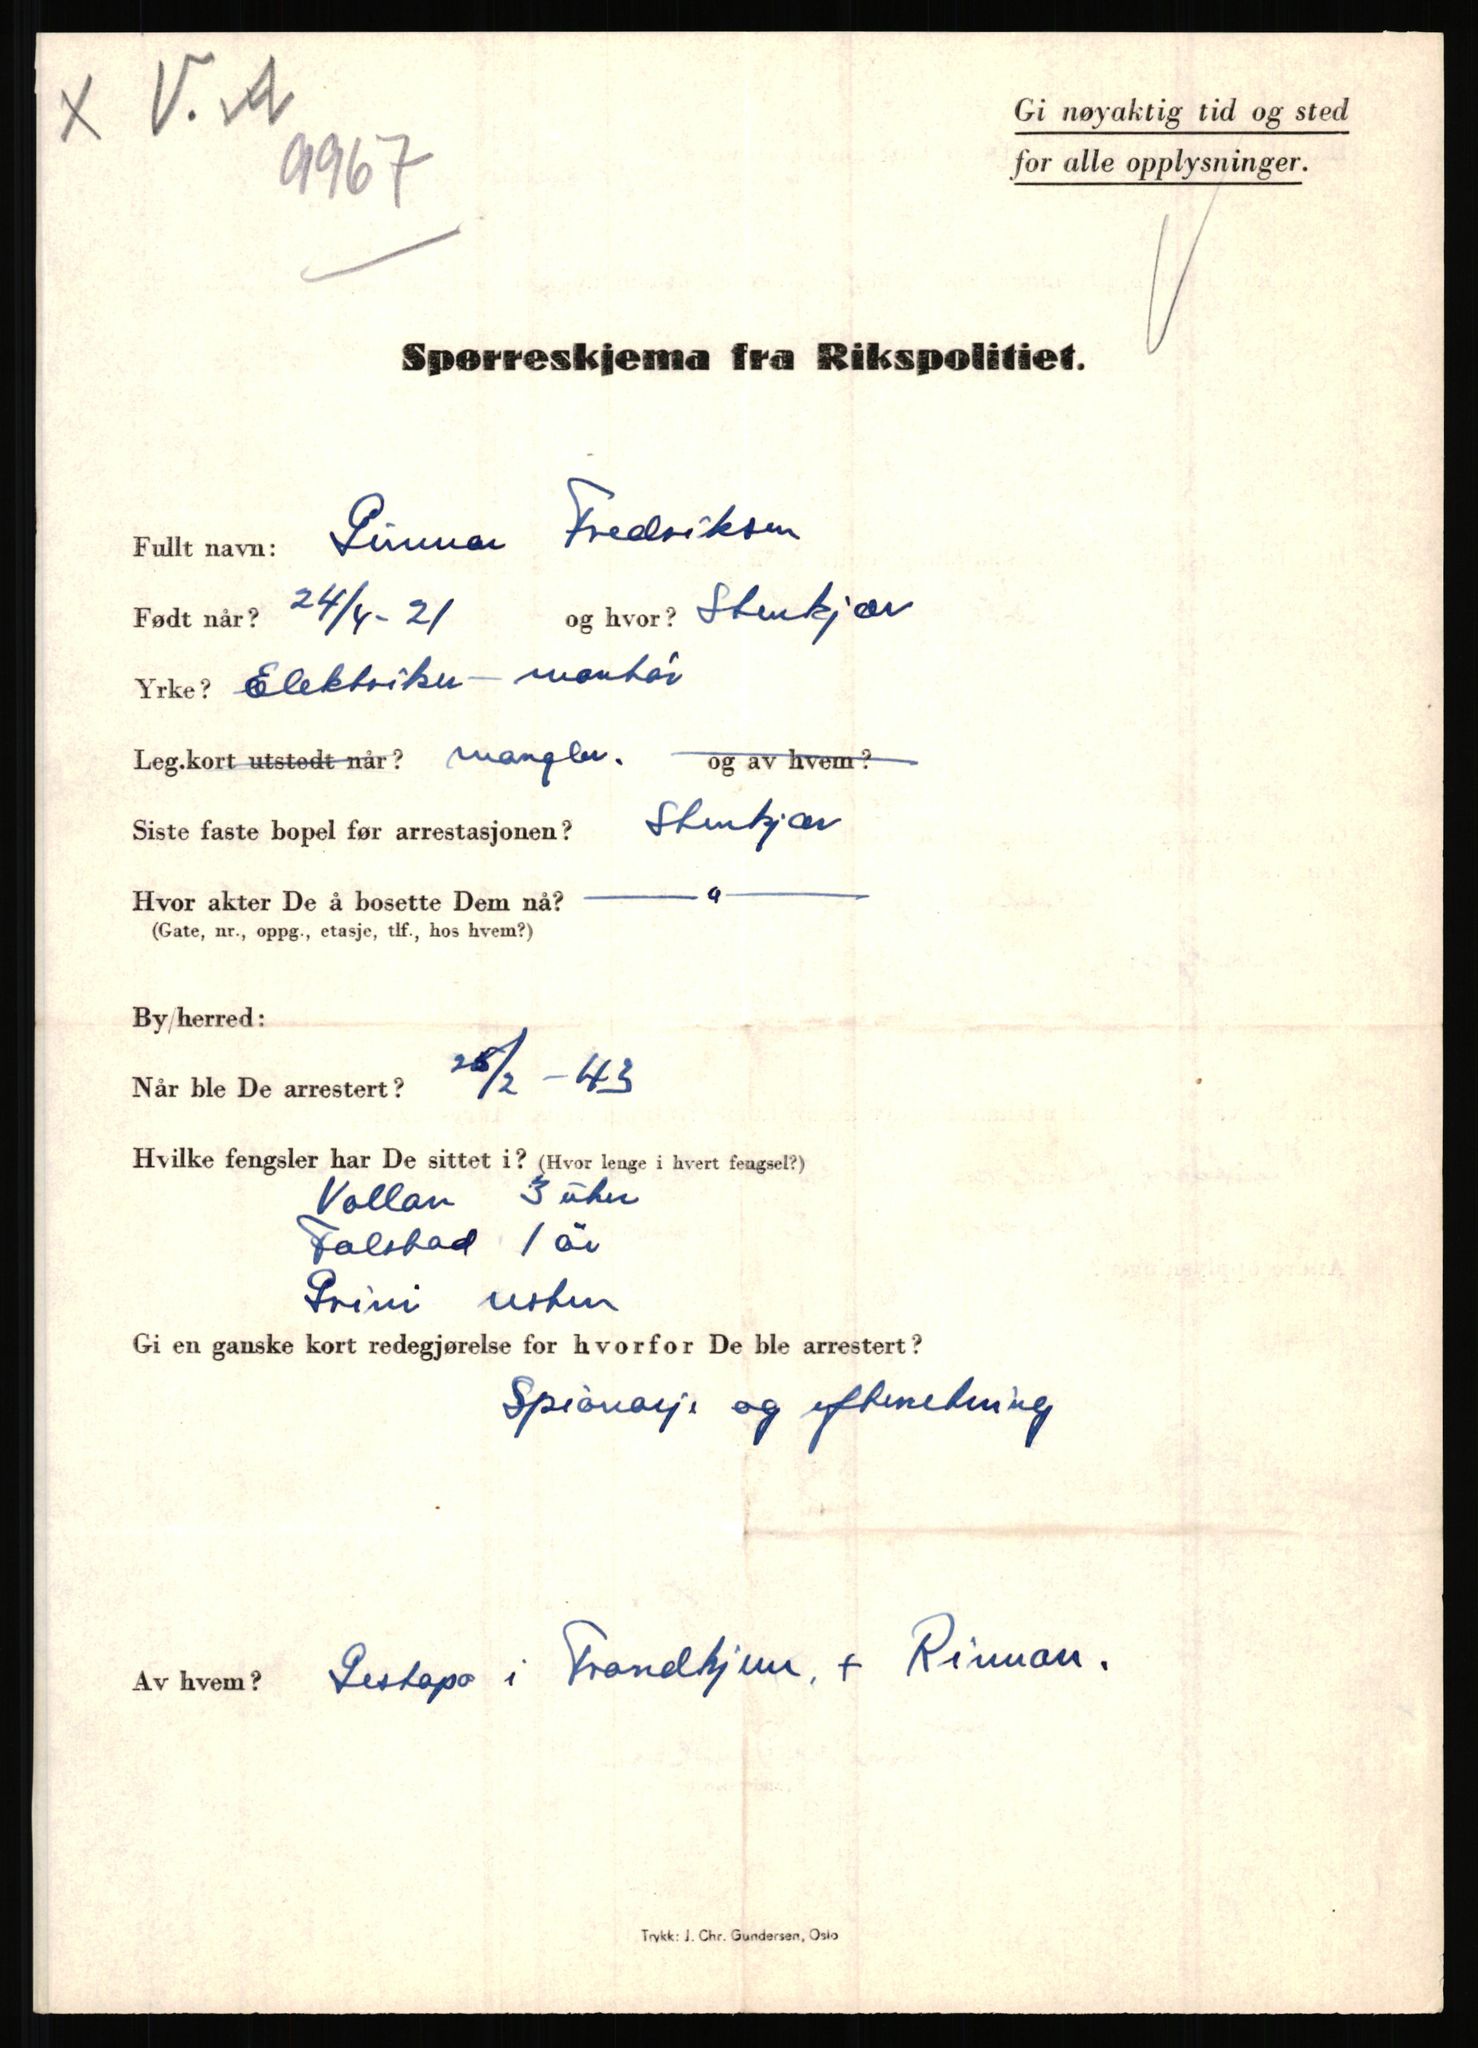 x V. A
9967
Gi nøyaktig tid og sted
for alle opplysninger.
Spørreskjema fra Rikspolitiet.
Fullt navn: Gunnar Fredriksen
Født når? 24/4-21 og hvor? Stenkjær
Yrke? Elektriker-montør
Leg.kort utstedt når? mangler. og av hvem?
Siste faste bopel før arrestasjonen? Stenkjær
Hvor akter De å bosette Dem nå? — " —
(Gate, nr., oppg., etasje, tlf., hos hvem?)
By/herred:
Når ble De arrestert? /2 - 43
Hvilke fengsler har De sittet i? (Hvor lenge i hvert fengsel?)
Vollan 3 uker
Falstad 1 år
Grini resten
Gi en ganske kort redegjørelse for hvorfor De ble arrestert?
Spionasje og efterretning
Av hvem? Gestapo i Trondhjem, + Rinnan.
Trykk: J. Chr. Gundersen, Oslo